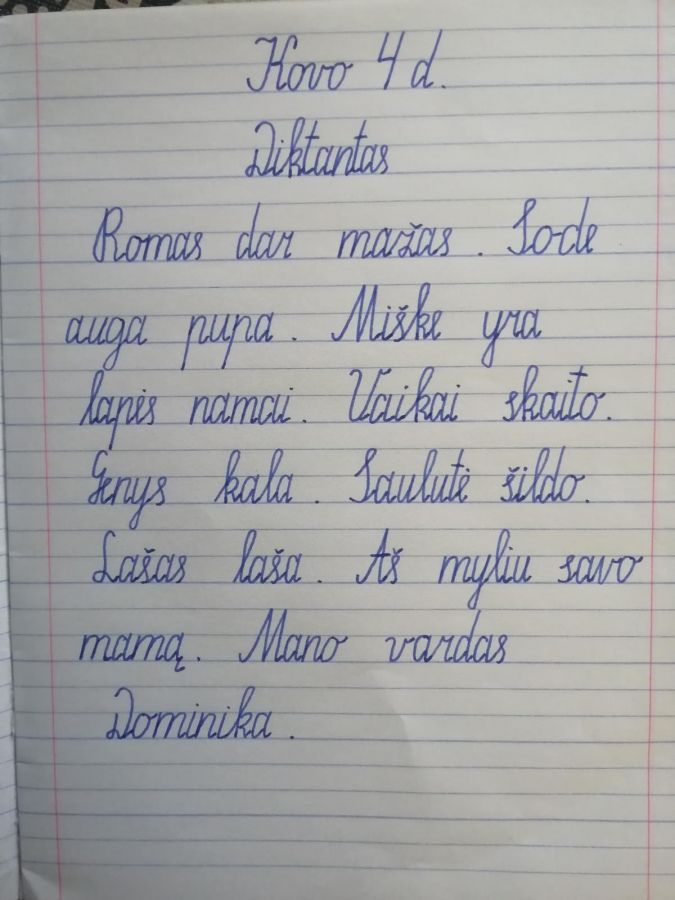 Kovo 4 d.
Diktantas
Romas dar mažas. Sode
auga pupa. Miške yra
lapės namai. Vaikai skaito.
Genys kala. Saulutė šildo.
Lašas laša. Aš myliu savo
mamą. Mano vardas
Dominika.